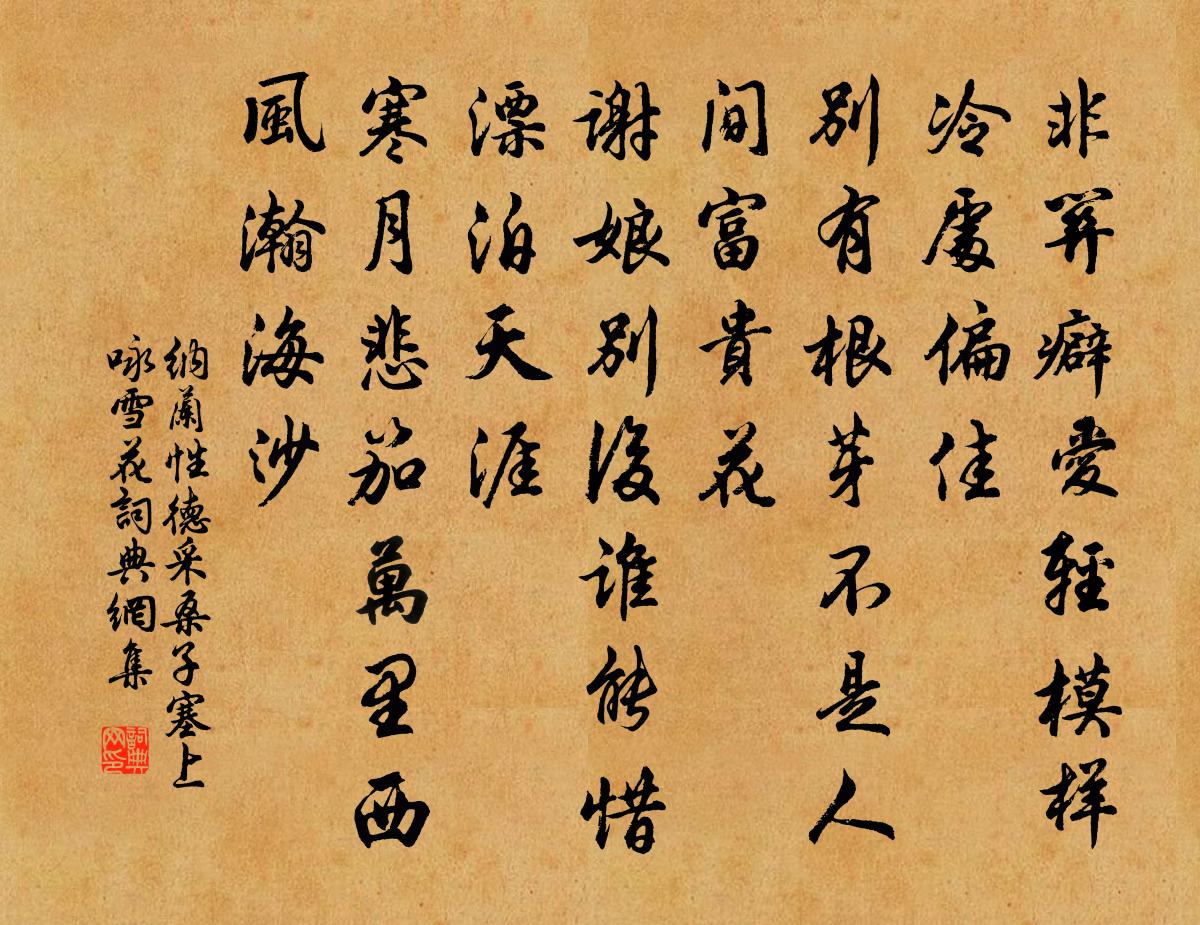 非關癖愛輕模样
冷處偏佳
别有根芽不是人
间富貴花
谢娘别後谁能惜
漂泊天涯
寒月悲笳萬里西
風瀚海沙
納蘭性德采桑子塞上
咏雪花詞典網集
詞典网印